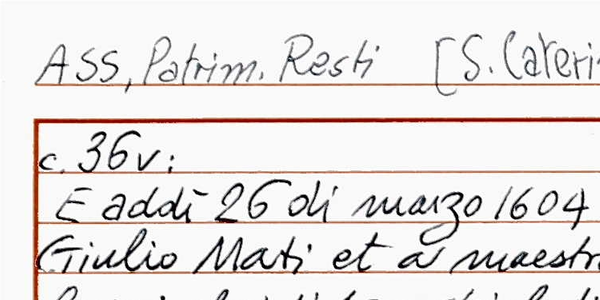 ASS, Patrim. Resti [S. Cateri
c. 36v:
E addì 26 di marzo 1604
Giulio Mati et a maestr